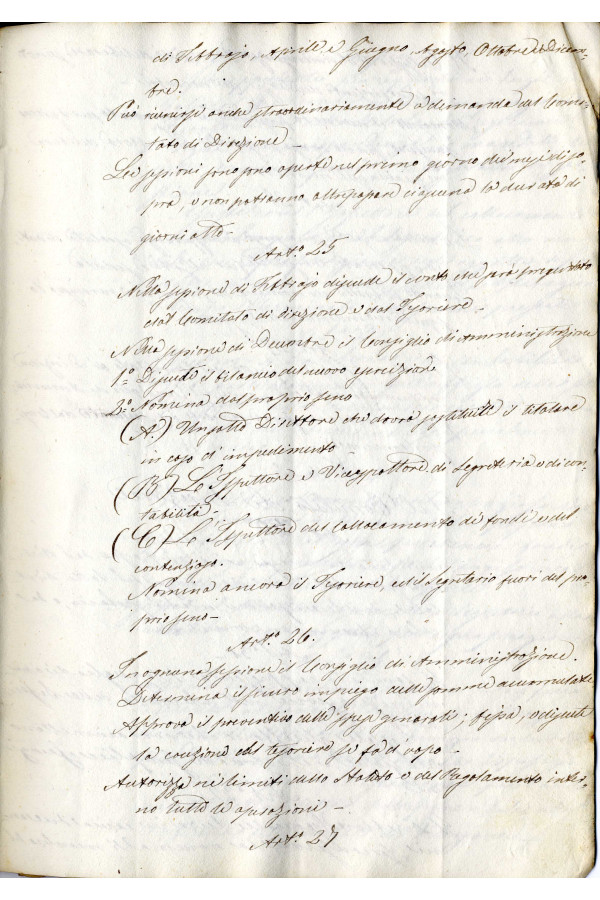 di Febbrajo, Aprile, e Giugno, Agosto, Ottobre e Dicem-
bre.
Può riunirsi anche straordinariamente a dimanda del Comi-
tato di Direzione –
Le sessioni sono aperte nel primo giorno dei mesi di so-
pra, e non potranno oltrepassare ciascuna la durata di
giorni otto –
Art.º 25
Nella sessione di Febbrajo discute il conto che sarà presentato
dal Comitato di direzione e dal Tesoriere –
Nella sessione di Decembre il Consiglio di Amministrazione
1.º Discute il bilancio del nuovo esercizio
2.º Nomina dal proprio seno
(A.) Un Direttore che dovrà sostituire il titolare
in caso d'impedimento –
(B) L'Ispettore e Viceispettore di segreteria e di con-
tabilità –
(C) L'Ispettore del collocamento dei fondi e del
contenzioso.
Nomina ancora il Tesoriere, ed il Segretario fuori del pro-
prio seno –
Art.º 26.
In ognuna sessione il Consiglio di Amministrazione.
Determina il sicuro impiego delle somme accumulate
Approva il preventivo delle spese generali; fissa, e discute
la cauzione del tesoriere se fa d'uopo –
Autorizza nei limiti dello Statuto e del Regolamento inter-
no tutte le operazioni –
Art.º 27